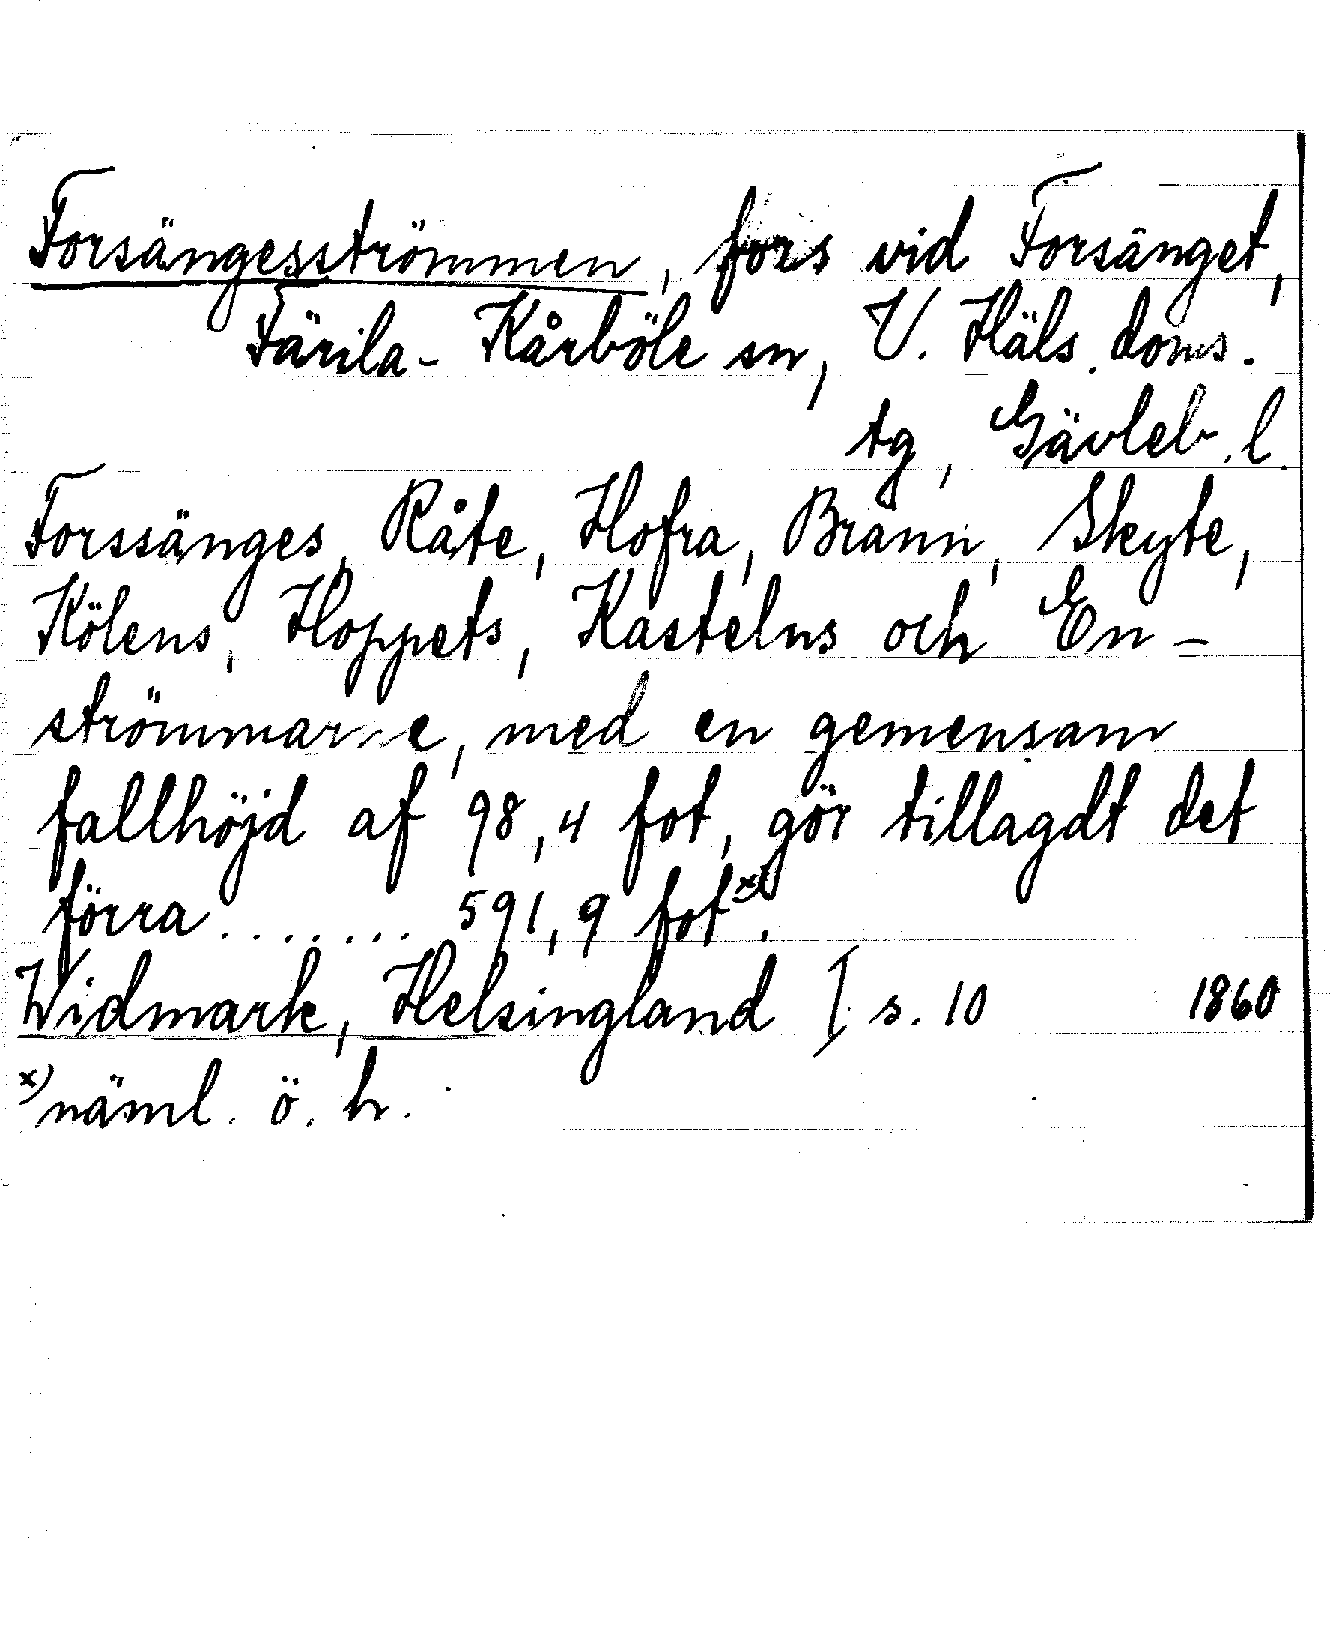 Forsängesströmmen, fors vid Forsänget,
Färila-Kårböle sn, V. Häls. doms.
tg, Gävleb. l.
Forssänges, Råte, Hofra, Brann, Skyte,
Kölens, Hoppets, Kastelns och En-
strömmarne, med en gemensam
fallhöjd af 98,4 fot, gör tillagdt det
förra ....... 591,9 fot x).
Widmark, Helsingland I s. 10 1860
x) näml. ö. h.